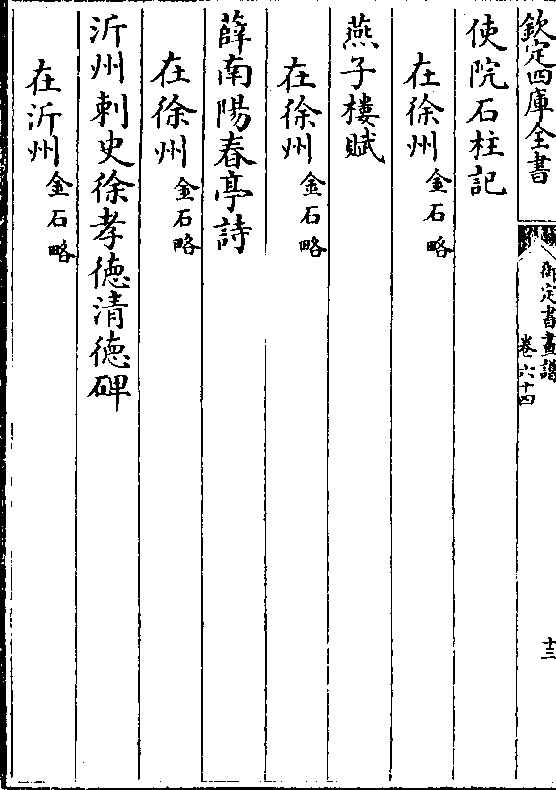 欽定四庫全書
御定書畫譜
卷六十四
十三
使院石柱記
在徐州金石略
燕子樓賦
在徐州金石略
薛南陽春亭詩
在徐州金石略
沂州刺史徐孝德清德碑
在沂州金石略